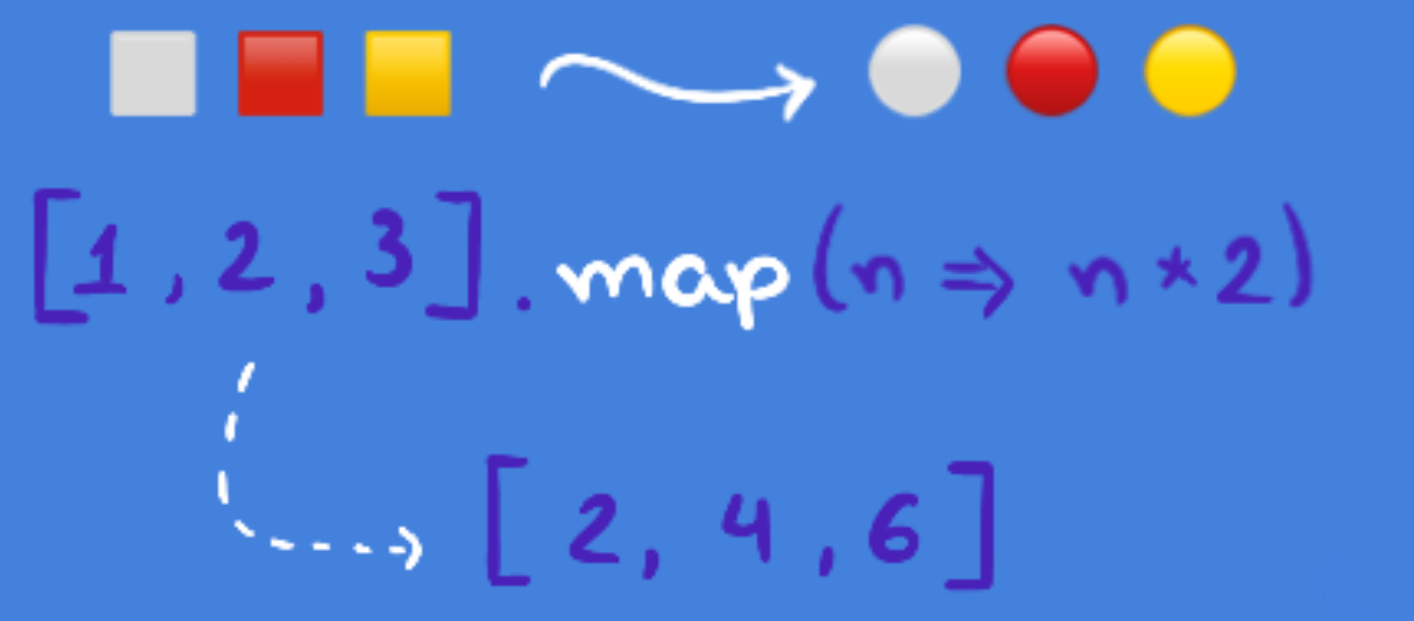 [1, 2, 3].map(n => n * 2)
[2, 4, 6]